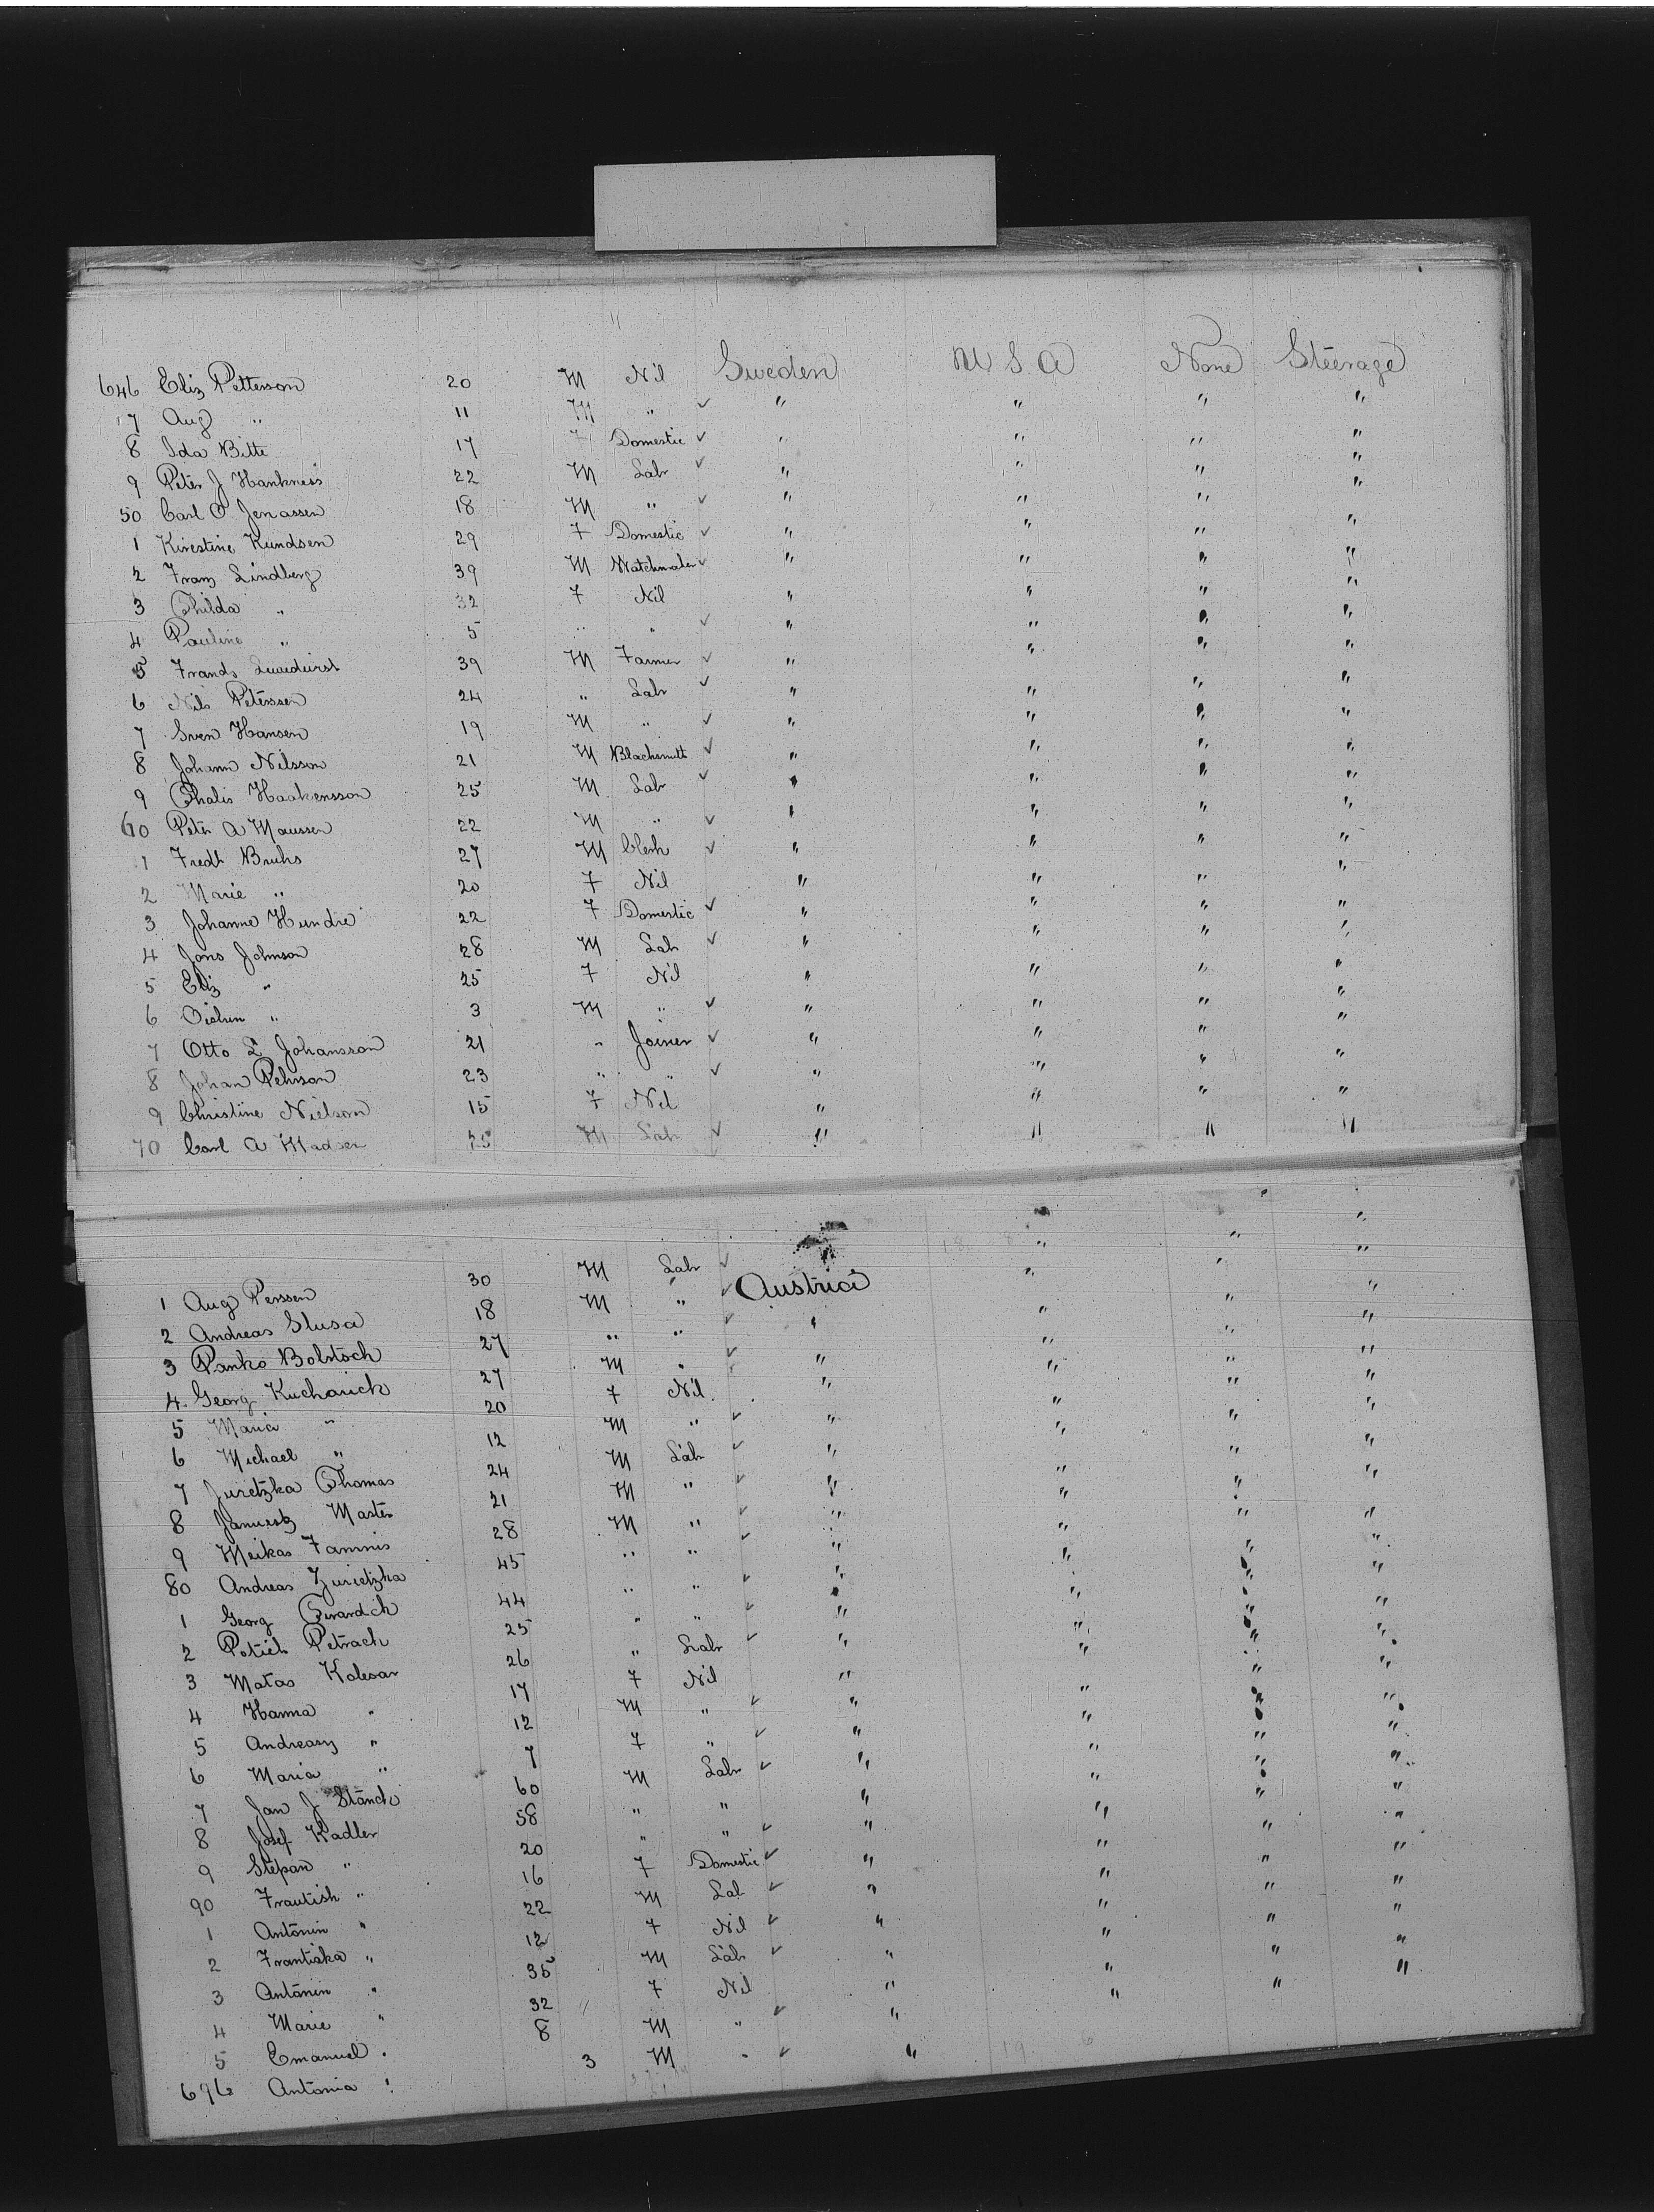 646 Eliz Petterson 20 M Nil Sweden U S A None Steerage
7 Aug " 11 M " ✓ " " " "
8 Ida Bitte 17 F Domestic ✓ " " " "
9 Peter J Hankness 22 M Labr ✓ " " " "
50 Carl O Jenassen 18 M " ✓ " " " "
1 Kirestine Kundsen 29 F Domestic ✓ " " " "
2 Franz Lindberg 39 M Watchmaker ✓ " " " "
3 Thilda " 32 F Nil " " " "
4 Pauline " 5 " " ✓ " " " "
5 Frands 39 M Farmer ✓ " " " "
6 Nils Peterssen 24 " Labr ✓ " " " "
7 Sven Hansen 19 M " ✓ " " " "
8 Johann Nilsson 21 M Blacksmith ✓ " " " "
9 Thalis Haakensson 25 M Labr ✓ " " " "
60 Peter A Maussen 22 M " ✓ " " " "
1 Fredk Bruhs 27 M Clerk ✓ " " " "
2 Marie " 20 F Nil " " " "
3 Johanne Hundre 22 F Domestic ✓ " " " "
4 Jons Johnson 28 M Labr ✓ " " " "
5 Eliz " 25 F Nil " " " "
6 " 3 M " ✓ " " " "
7 Otto L Johansson 21 " Joiner ✓ " " " "
8 Johan Pehrson 23 " " ✓ " " " "
9 Christine Nielson 15 F Nil " " " "
70 Carl A Madsen 25 M Labr ✓ " " " "
1 Aug Perssen 30 M Labr ✓ " " " "
2 Andreas Slusa 18 M " ✓ Austria " " "
3 Panko Bolstoch 27 " " ✓ " " " "
4 Georg Kucharick 27 M " ✓ " " " "
5 Maria " 20 F Nil " " " "
6 Michael " 12 M " ✓ " " " "
7 Juretzka Thomas 24 M Labr ✓ " " " "
8 Master 21 M " ✓ " " " "
9 Meikas Fannis 28 M " ✓ " " " "
80 Andreas Zurietzka 45 " " ✓ " " " "
1 Georg 44 " " ✓ " " " "
2 Petrach 25 " " ✓ " " " "
3 Matas Kolesar 26 " Labr ✓ " " " "
4 Hanna " 17 F Nil " " " "
5 Andreasz " 12 M " ✓ " " " "
6 Maria " 7 F " ✓ " " " "
7 Jan J Stanch 60 M Labr ✓ " " " "
8 Josef Kadler 58 " " " " " "
9 Stepan " 20 " " ✓ " " " "
90 Frautish " 16 F Domestic ✓ " " " "
1 Antonin " 22 M Lab ✓ " " " "
2 Frantiska " 12 F Nil ✓ " " " "
3 Antonin " 35 M Labr ✓ " " " "
4 Marie " 32 F Nil " " " "
5 Emanuel " 8 M " ✓ "
696 Antonia " 3 M " ✓ "